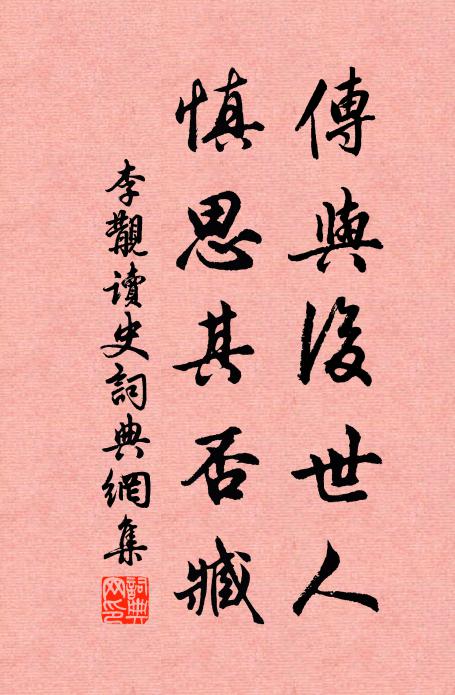 傳與後世人
慎思其否臧
李覯讀史詞典網集
詞典網印